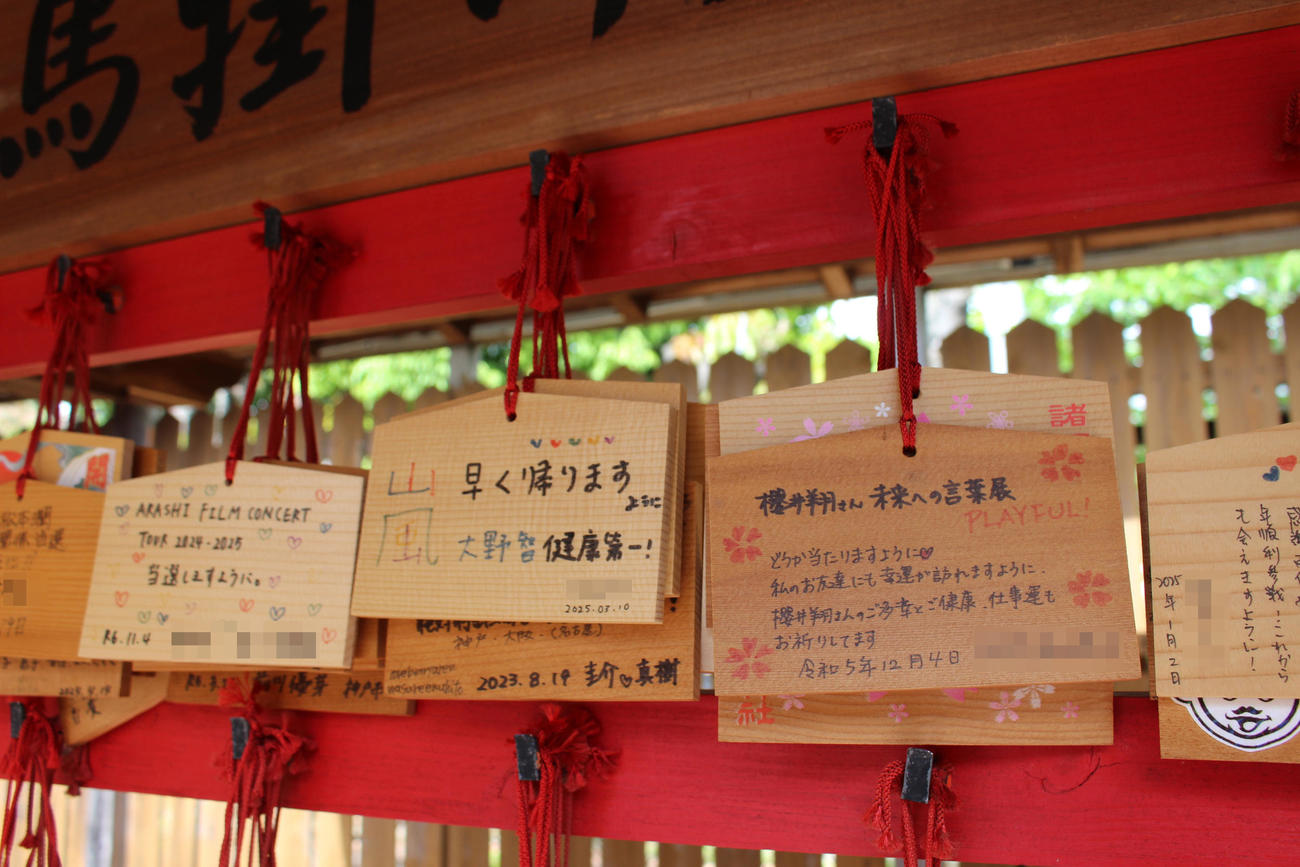 馬掛
ARASHI FILM CONCERT
TOUR 2024-2025
当選しますように。
R6.11.4
山
風
早く帰ります
ように
大野智 健康第一!
2025.03.10
神戸・大阪・(名古屋)
2023.8.19 圭介♡真樹
神戸市
諸
櫻井翔さん 未来への言葉展
PLAYFUL!
どうか当たりますように♡
私のお友達にも幸運が訪れますように.
櫻井翔さんのご多幸とご健康、仕事運も
お祈りしてます
令和5年12月4日
社
年順利参戦!これから
も会えますように!
2025年1月2日